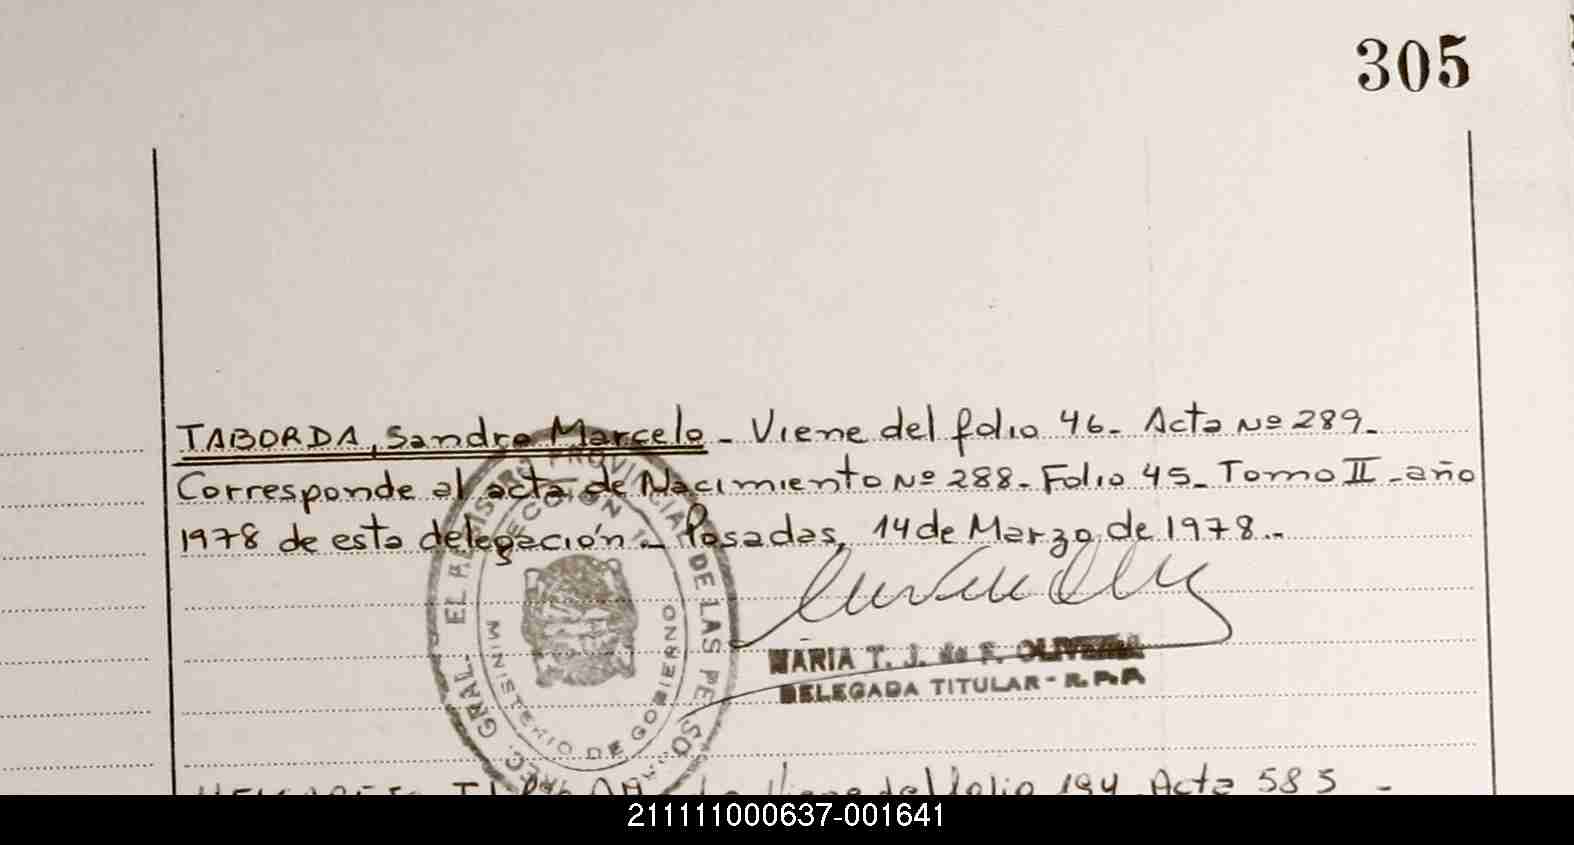 305
TABORDA, Sandro Marcelo - Viene del folio 46 - Acta Nº 289 -
Corresponde al acta de Nacimiento Nº 288 - Folio 45 - Tomo II - año
1978 de esta delegación - Posadas, 14 de Marzo de 1978.-
MARIA T. J. de F. OLIVEIRA
DELEGADA TITULAR - R.P.P.
PROVINCIAL DE LAS PERSONAS
GRAL.
MINISTERIO DE GOBIERNO
Viene del folio 194 Acta 585 -
211111000637-001641